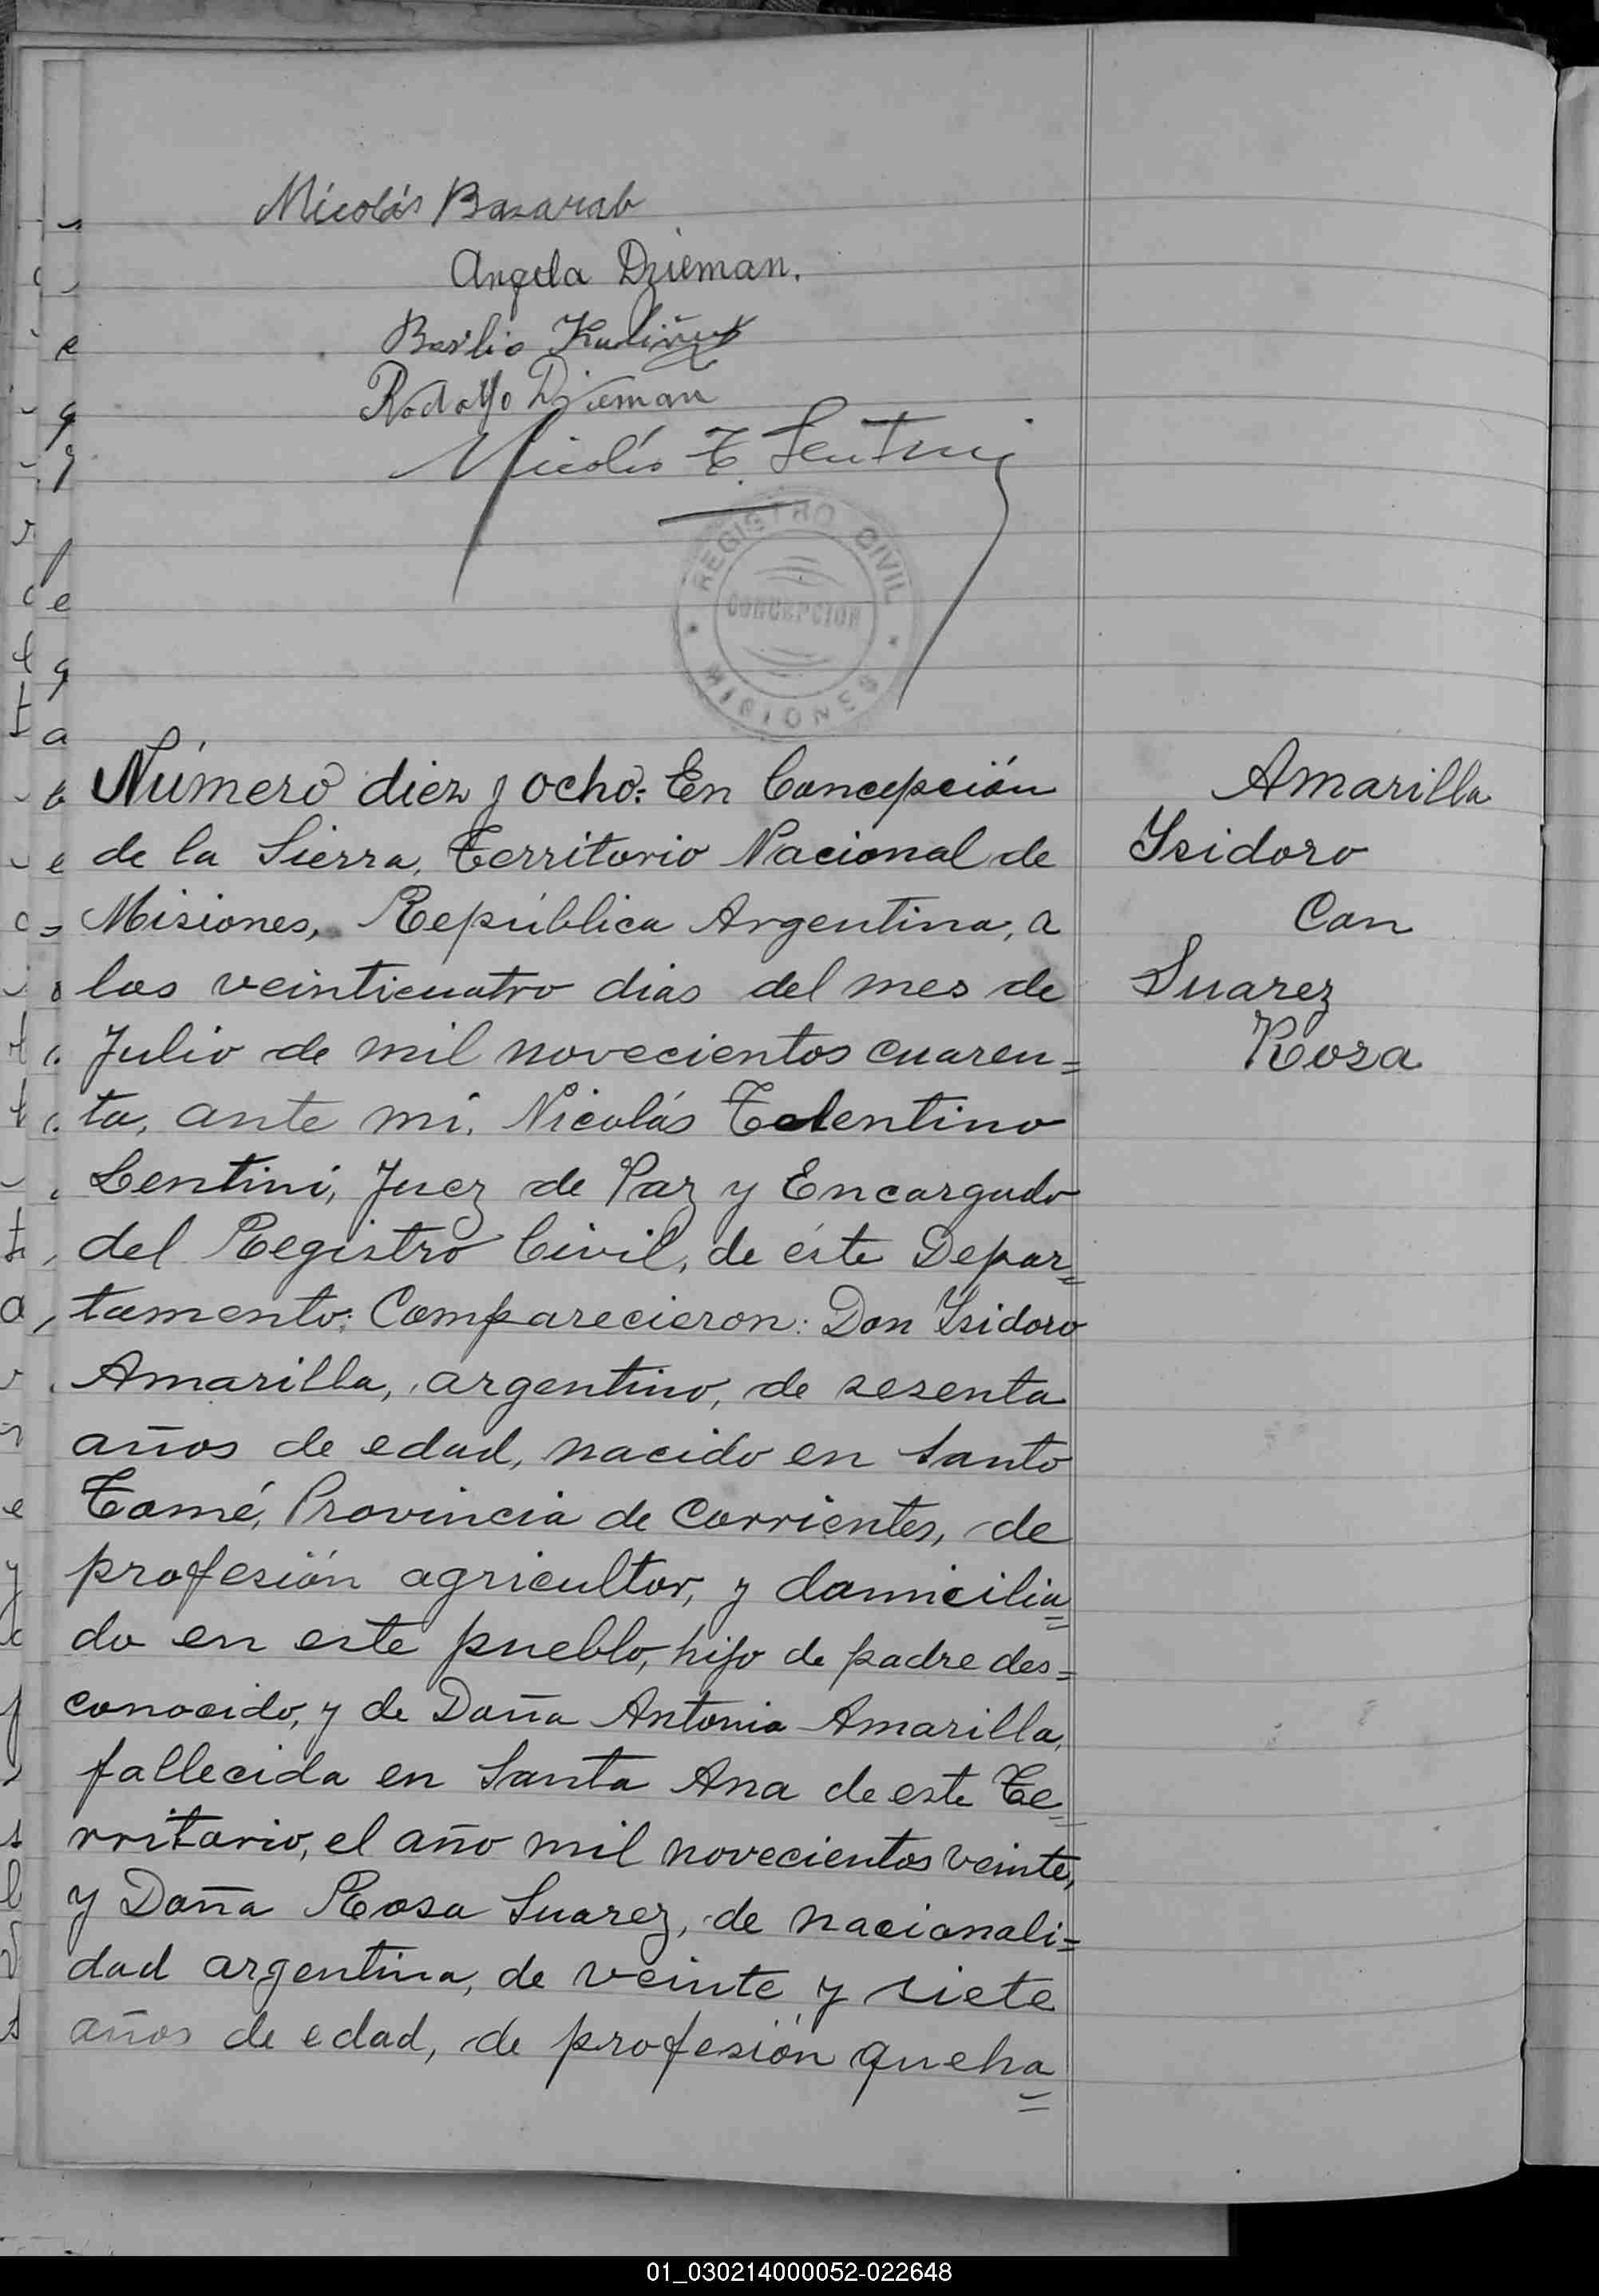 Nicolás Bazarab
Angela Dzieman.
Basilio
Rodolfo Dzieman
Nicolás T. Lentini
REGISTRO CIVIL
CONCEPCION
MISIONES
Número diez y ocho: En Concepción
de la Sierra, Territorio Nacional de
Misiones, República Argentina, a
los veinticuatro dias del mes de
Julio de mil novecientos cuaren=
ta, ante mí, Nicolás Tolentino
Lentini, Juez de Paz y Encargado
del Registro Civil, de éste Depar=
tamento: Comparecieron: Don Isidoro
Amarilla, argentino, de sesenta
años de edad, nacido en Santo
Tomé, Provincia de Corrientes, de
profesión agricultor, y domicilia=
do en este pueblo, hijo de padre des=
conocido, y de Doña Antonia Amarilla,
fallecida en Santa Ana de este Te=
rritorio, el año mil novecientos veinte,
y Doña Rosa Suarez, de nacionali=
dad argentina, de veinte y siete
años de edad, de profesión queha=
Amarilla
Isidoro
Con
Suarez
Rosa
01_030214000052-022648